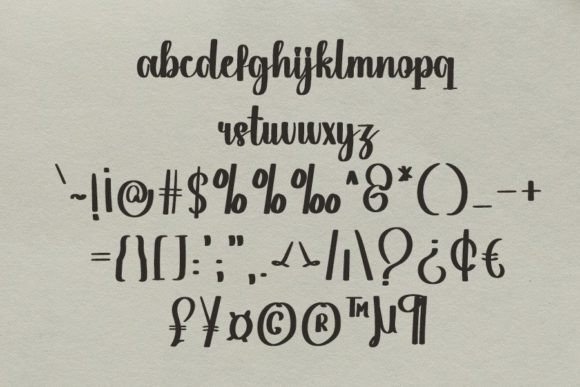 abcdefghijklmnopq
rstuvwxyz
`~!¡@#$%%‰^&*()_-+
={}[]:;'",.<>/|\?¿¢€
£¥¤©®™µ¶